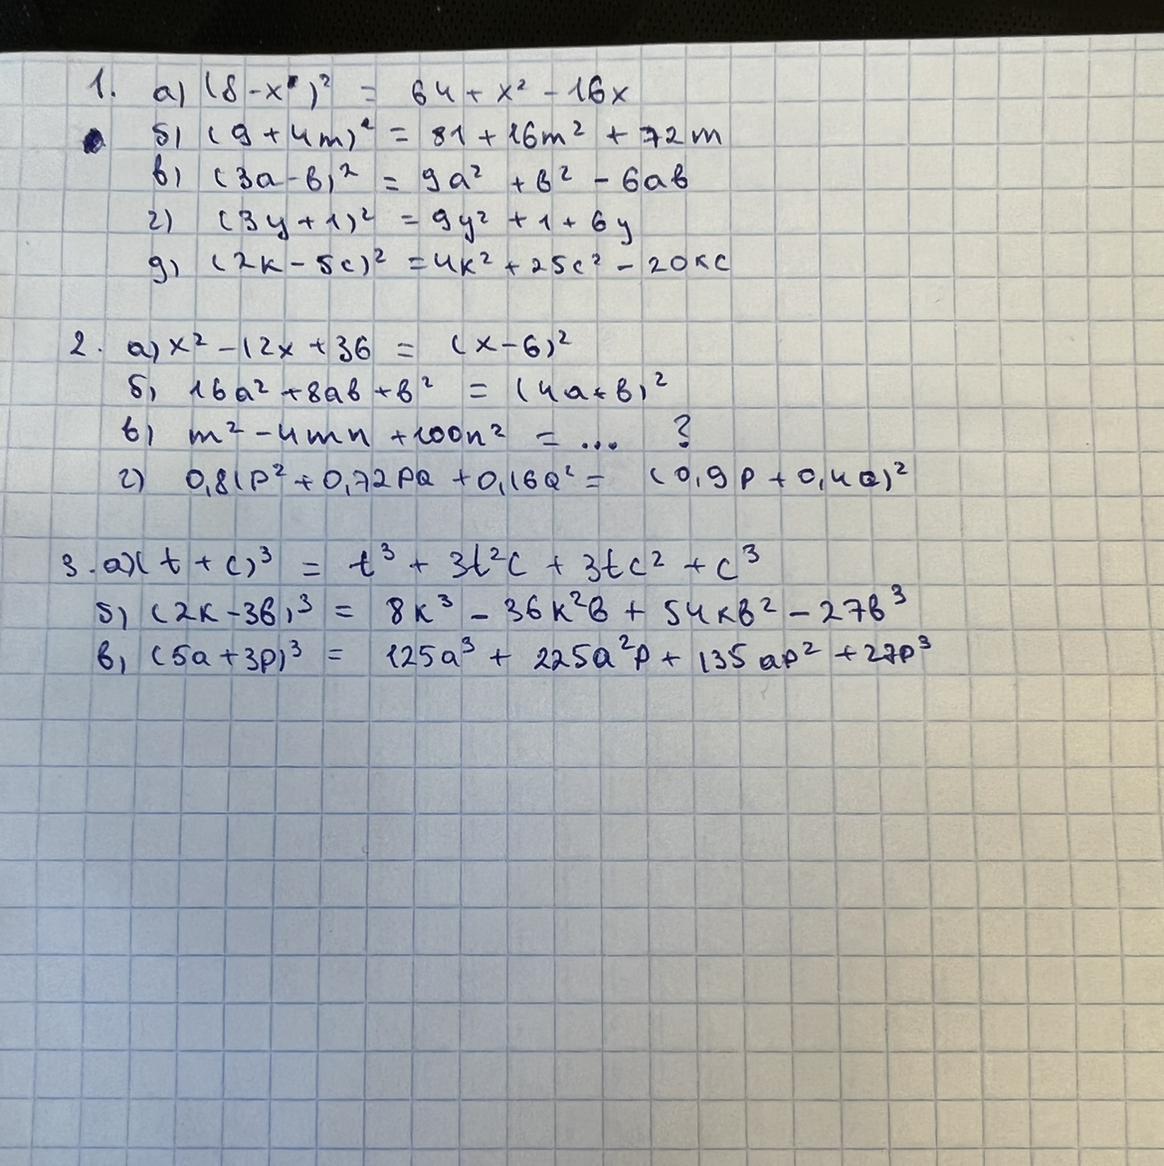 1. а) (8-x)² = 64 + x² - 16x
б) (9 + 4m)² = 81 + 16m² + 72m
в) (3a - b)² = 9a² + b² - 6ab
г) (3y + 1)² = 9y² + 1 + 6y
д) (2к - 5c)² = 4к² + 25c² - 20кc
2. а) x² - 12x + 36 = (x - 6)²
б) 16a² + 8ab + b² = (4a + b)²
в) m² - 4mn + 100n² = ... ?
г) 0,81p² + 0,72pQ + 0,16Q² = (0,9p + 0,4Q)²
3. а) (t + c)³ = t³ + 3t²c + 3tc² + c³
б) (2к - 3b)³ = 8к³ - 36к²b + 54кb² - 27b³
в) (5a + 3p)³ = 125a³ + 225a²p + 135ap² + 27p³